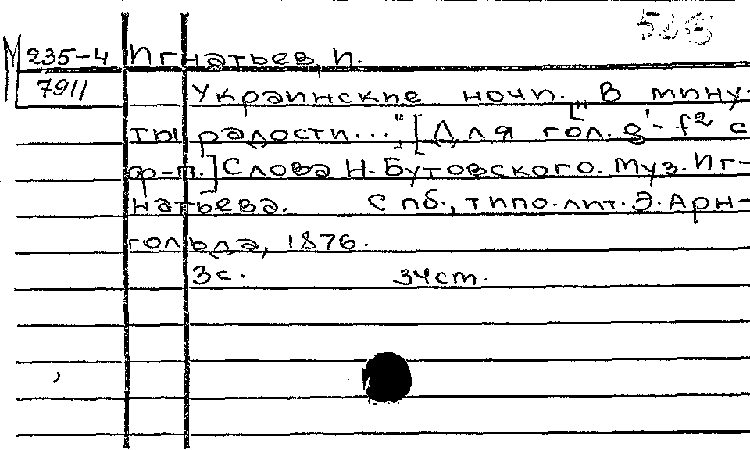 М 235-4 Игнатьев, И.
7911 Украинские ночи. „В мину-
ты радости...". [Для гол. g¹-f² с
ф-п.] Слова Н. Бутовского. Муз. Иг-
натьева. Спб., типо-лит. Э. Арн-
гольда, 1876.
3 с. 34 cm.